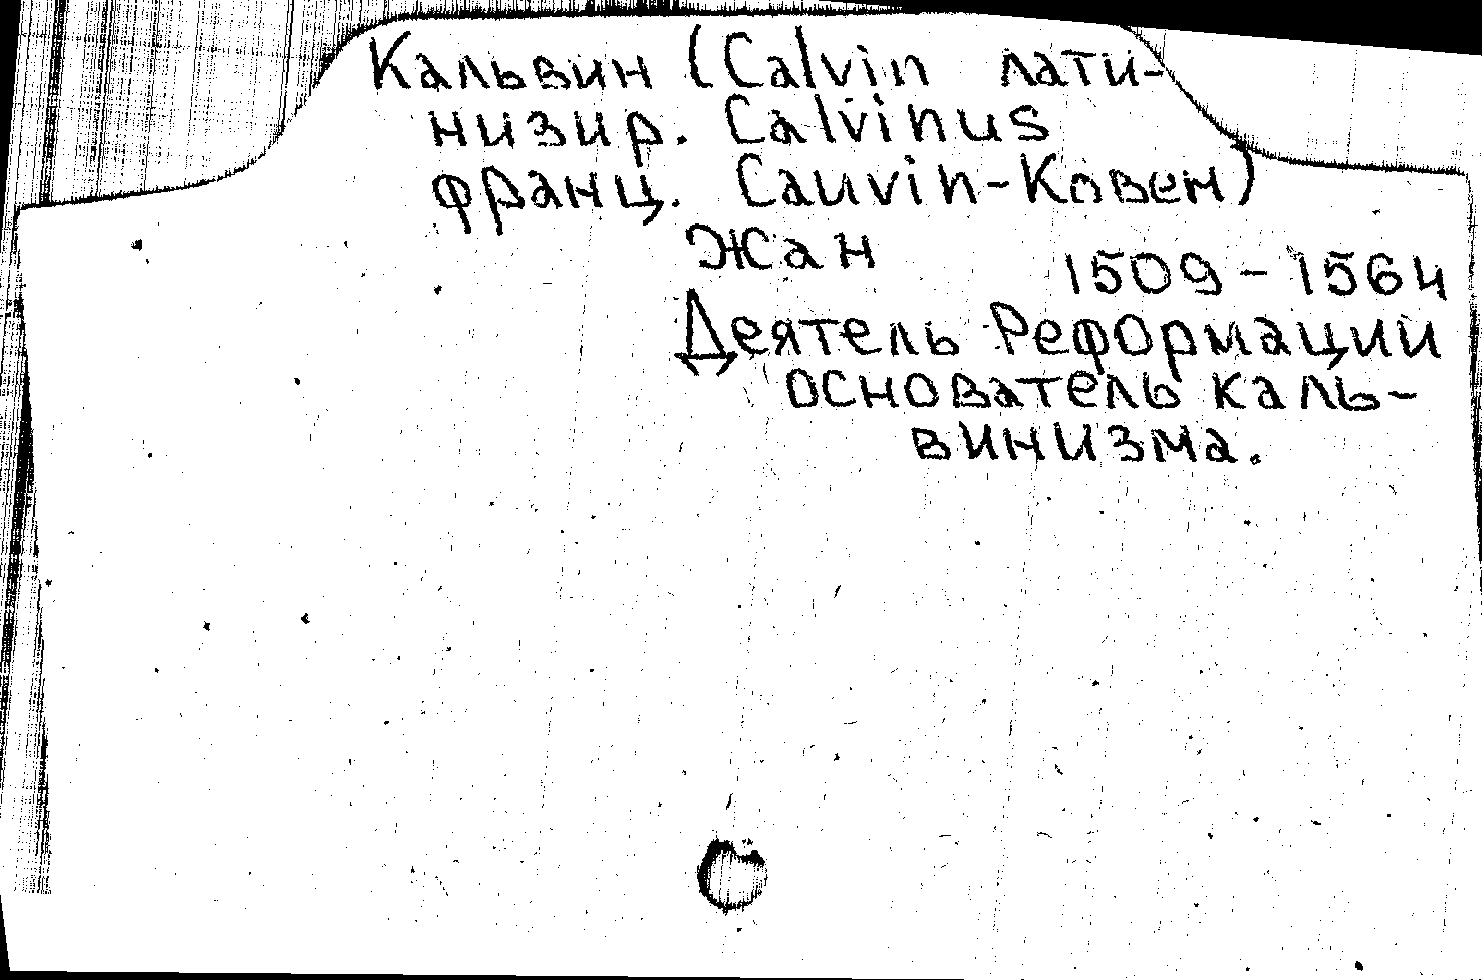 Кальвин (Calvin лати-
низир. Calvinus
франц. Cauvin-Ковен)
Жан 1509-1564
Деятель Реформации
основатель каль-
винизма.